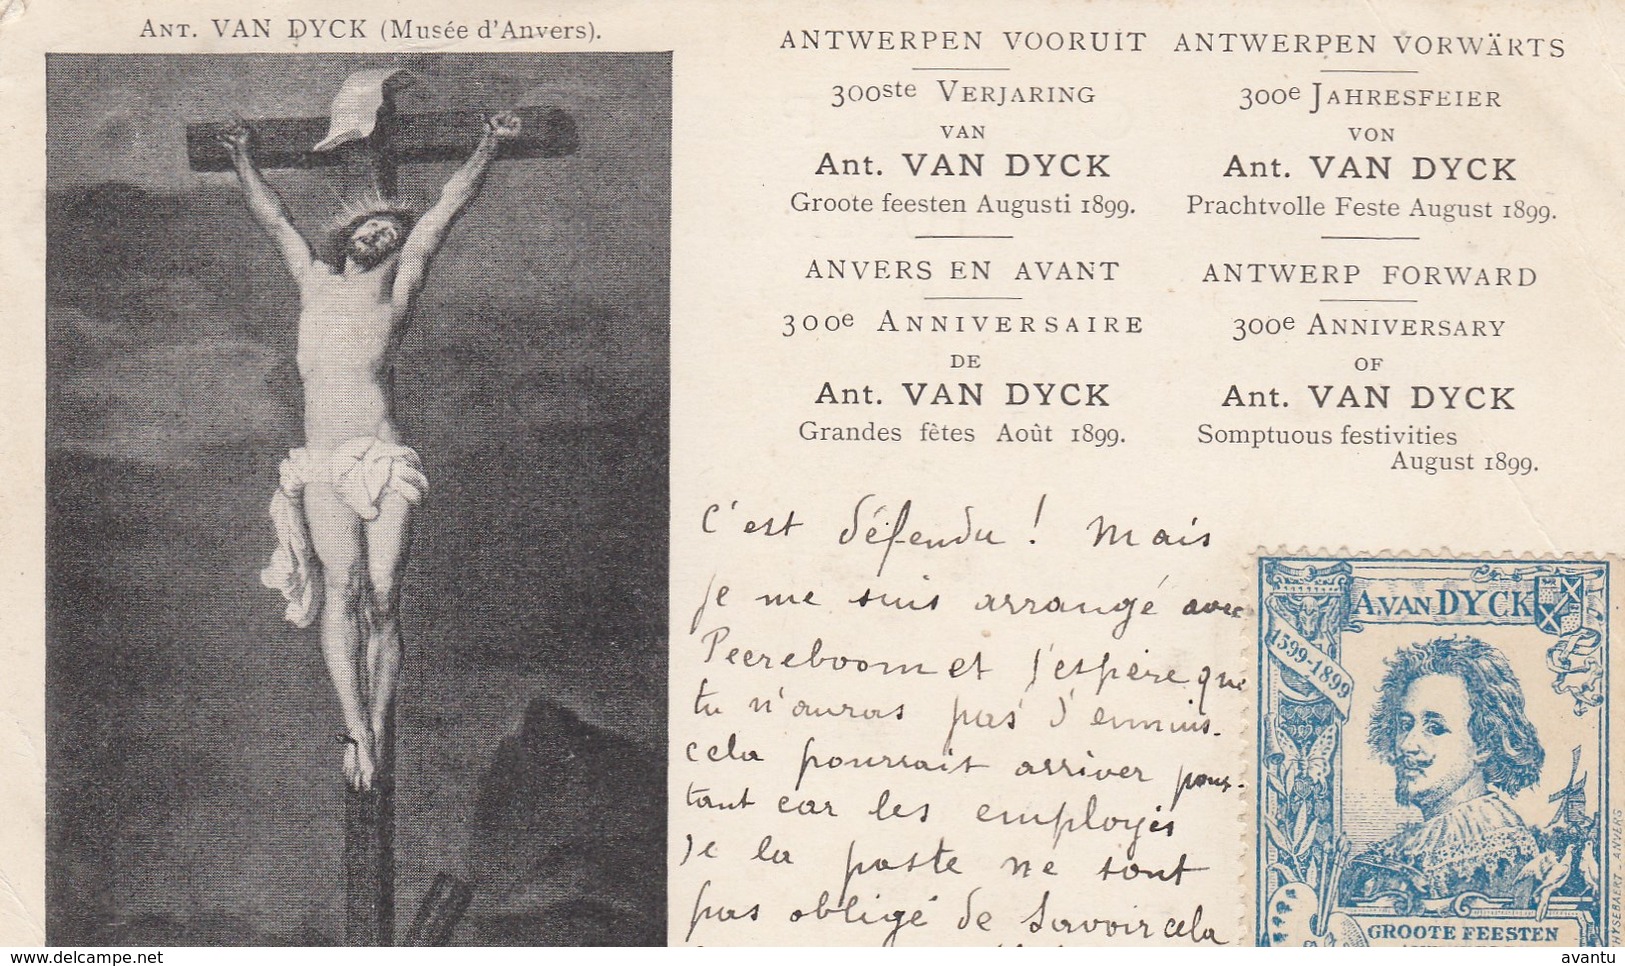 ANT. VAN DYCK (Musée d'Anvers).
ANTWERPEN VOORUIT
300ste VERJARING
VAN
Ant. VAN DYCK
Groote feesten Augusti 1899.
ANTWERPEN VORWÄRTS
300e JAHRESFEIER
VON
Ant. VAN DYCK
Prachtvolle Feste August 1899.
ANVERS EN AVANT
300e ANNIVERSAIRE
DE
Ant. VAN DYCK
Grandes fêtes Août 1899.
ANTWERP FORWARD
300e ANNIVERSARY
OF
Ant. VAN DYCK
Somptuous festivities
August 1899.
C'est défendu ! Mais
je me suis arrangé avec
Peereboom et j'espère que
tu n'auras pas d'ennuis.
cela pourrait arriver pour-
tant car les employés
de la poste ne sont
pas obligé de savoir cela
A. VAN DYCK
1599-1899
GROOTE FEESTEN
THYSEBAERT - ANVERS
delcampe.net
avantu